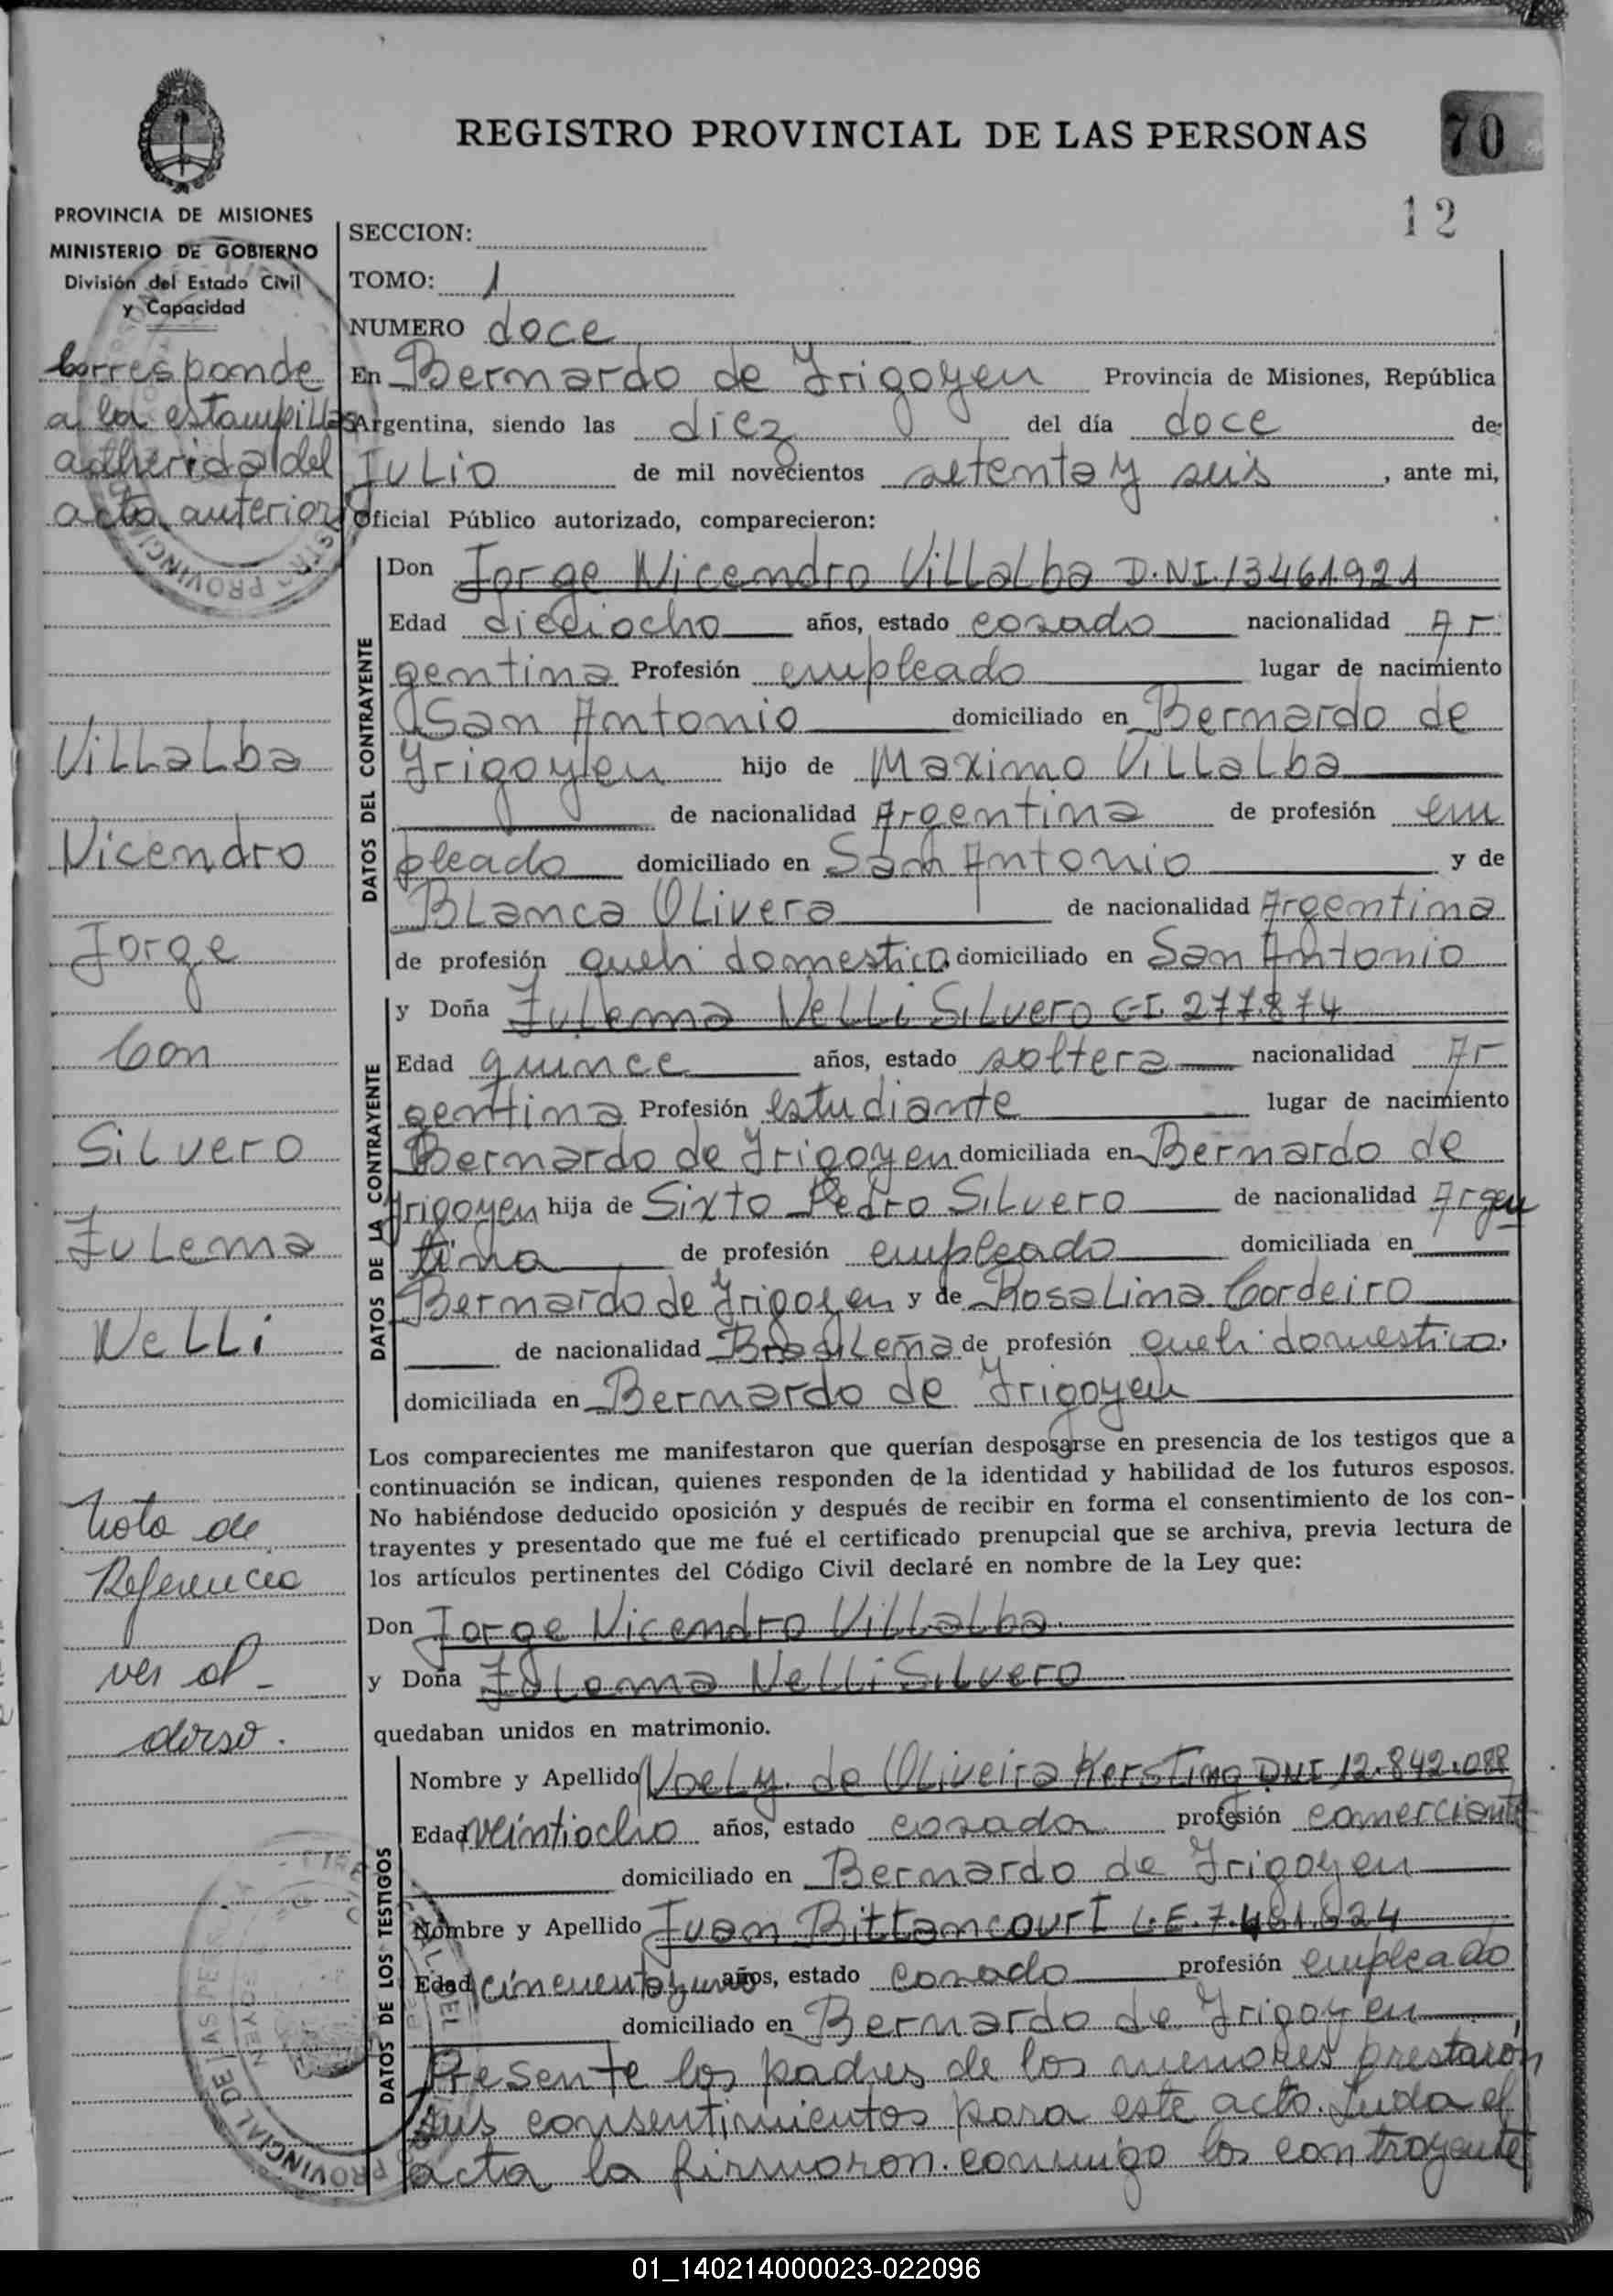 REGISTRO PROVINCIAL DE LAS PERSONAS
70
12
PROVINCIA DE MISIONES
MINISTERIO DE GOBIERNO
División del Estado Civil
y Capacidad
Corresponde
a la estampilla
adherida del
acta anterior
Villalba
Nicendro
Jorge
Con
Silvero
Zulema
Nelli
Nota de
Referencia
ver al
dorso.
SECCION:
TOMO: 1
NUMERO doce
En Bernardo de Irigoyen Provincia de Misiones, República
Argentina, siendo las diez del día doce de
Julio de mil novecientos setenta y seis, ante mi,
Oficial Público autorizado, comparecieron:
DATOS DEL CONTRAYENTE
Don Jorge Nicendro Villalba D.N.I. 13461921
Edad dieciocho años, estado casado nacionalidad Ar
gentina Profesión empleado lugar de nacimiento
San Antonio domiciliado en Bernardo de
Irigoyen hijo de Maximo Villalba
de nacionalidad Argentina de profesión em
pleado domiciliado en San Antonio y de
Blanca Olivera de nacionalidad Argentina
de profesión queh domestico. domiciliado en San Antonio
DATOS DE LA CONTRAYENTE
y Doña Zulema Nelli Silvero C.I. 277.874
Edad quince años, estado soltera nacionalidad Ar
gentina Profesión estudiante lugar de nacimiento
Bernardo de Irigoyen domiciliada en Bernardo de
Irigoyen hija de Sixto Pedro Silvero de nacionalidad Argen
tina de profesión empleado domiciliada en
Bernardo de Irigoyen y de Rosalina Cordeiro
de nacionalidad Brasileña de profesión queh domestico.
domiciliada en Bernardo de Irigoyen
Los comparecientes me manifestaron que querían desposarse en presencia de los testigos que a
continuación se indican, quienes responden de la identidad y habilidad de los futuros esposos.
No habiéndose deducido oposición y después de recibir en forma el consentimiento de los con-
trayentes y presentado que me fué el certificado prenupcial que se archiva, previa lectura de
los artículos pertinentes del Código Civil declaré en nombre de la Ley que:
Don Jorge Nicendro Villalba
y Doña Zulema Nelli Silvero
quedaban unidos en matrimonio.
DATOS DE LOS TESTIGOS
Nombre y Apellido Noely de Oliveira Kersting DNI 12.842.088
Edad veintiocho años, estado casada profesión comerciante
domiciliado en Bernardo de Irigoyen
Nombre y Apellido Juan Bittancourt L.E. 7.481.824
Edad cincuenta y uno años, estado casado profesión empleado
domiciliado en Bernardo de Irigoyen
Presente los padres de los menores prestaron
sus consentimientos para este acto. Leida el
acta la firmaron conmigo los contrayente
01_140214000023-022096